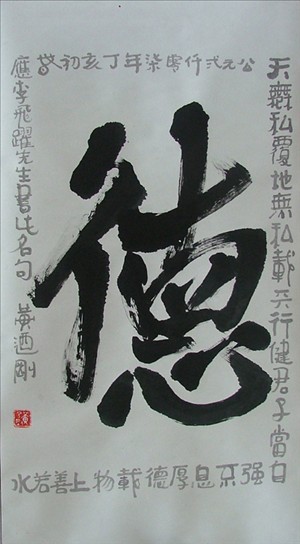 德
天無私覆地無私載天行健君子當自
强不息厚德載物上善若水
公元弍仟零柒年丁亥初敬
應李飛躍先生書此名句 黄迺剛